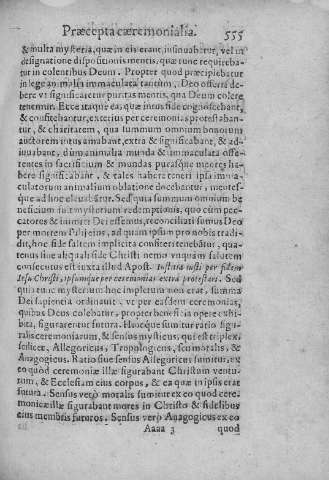 Præcepta cæremonialia. 555
& multa mysteria, quæ in eis erant, insinuabatur, vel in
designatione dispositionis mentis, quæ tunc requireba-
tur in colentibus Deum. Propter quod præcipiebatur
in lege animalia immaculata tantum, Deo offerri de-
bere vt significaretur puritas mentis, qua Deum colere
tenemur. Ecce itaque ea, quæ intus fide cognoscebant,
& confitebantur, exterius per ceremonias protestaban-
tur, & charitatem, qua summum omnium bonorum
auctorem intus amabant, extra & significabant, & ad-
iuuabant, dum animalia munda & immaculata offe-
rentes in sacrificium & mundas purasque mentes ha-
bere significabant, & tales habere teneri ipsa imma-
culatorum animalium oblatione docebantur, mentes-
que ad hoc eleuabatur. Sed quia summum omnium be
neficium fuit mysterium redemptionis, quo cum pec-
catores & inimici Dei essemus, reconciliati sumus Deo
per mortem Filij eius, ad quam ipsum pro nobis tradi-
dit, hoc fide saltem implicita confiteri tenebātur, qua-
tenus sine aliquali fide Christi nemo vnquam salutem
consecutus est iuxta illud Apost. Iustitia iusti per fidem
Iesu Christi, ipsumque per ceremonias extra protestari. Sed
quia tunc mysterium hoc impletum non erat, summa
Dei sapientia ordinauit, vt per easdem ceremonias,
quibus Deus colebatur, propter beneficia opere exhi-
bita, figurarentur futura. Hucque sumitur ratio figu-
ralis ceremoniarum, & sensus mysticus, qui est triplex.
scilicet, Allegoricus, Tropologicus, seu moralis, &
Anagogicus. Ratio siue sensus Allegoricus sumitur, ex
eo quod ceremoniæ illæ figurabant Christum ventu-
rum, & Ecclesiam eius corpus, & ea quæ in ipsis erāt
futura. Sensus verò moralis sumitur ex eo quod cere-
moniæ illæ figurabant mores in Christo & fidelibus
eius membris futuros. Sensus verò Anagogicus ex eo
Aaaa 3 quod